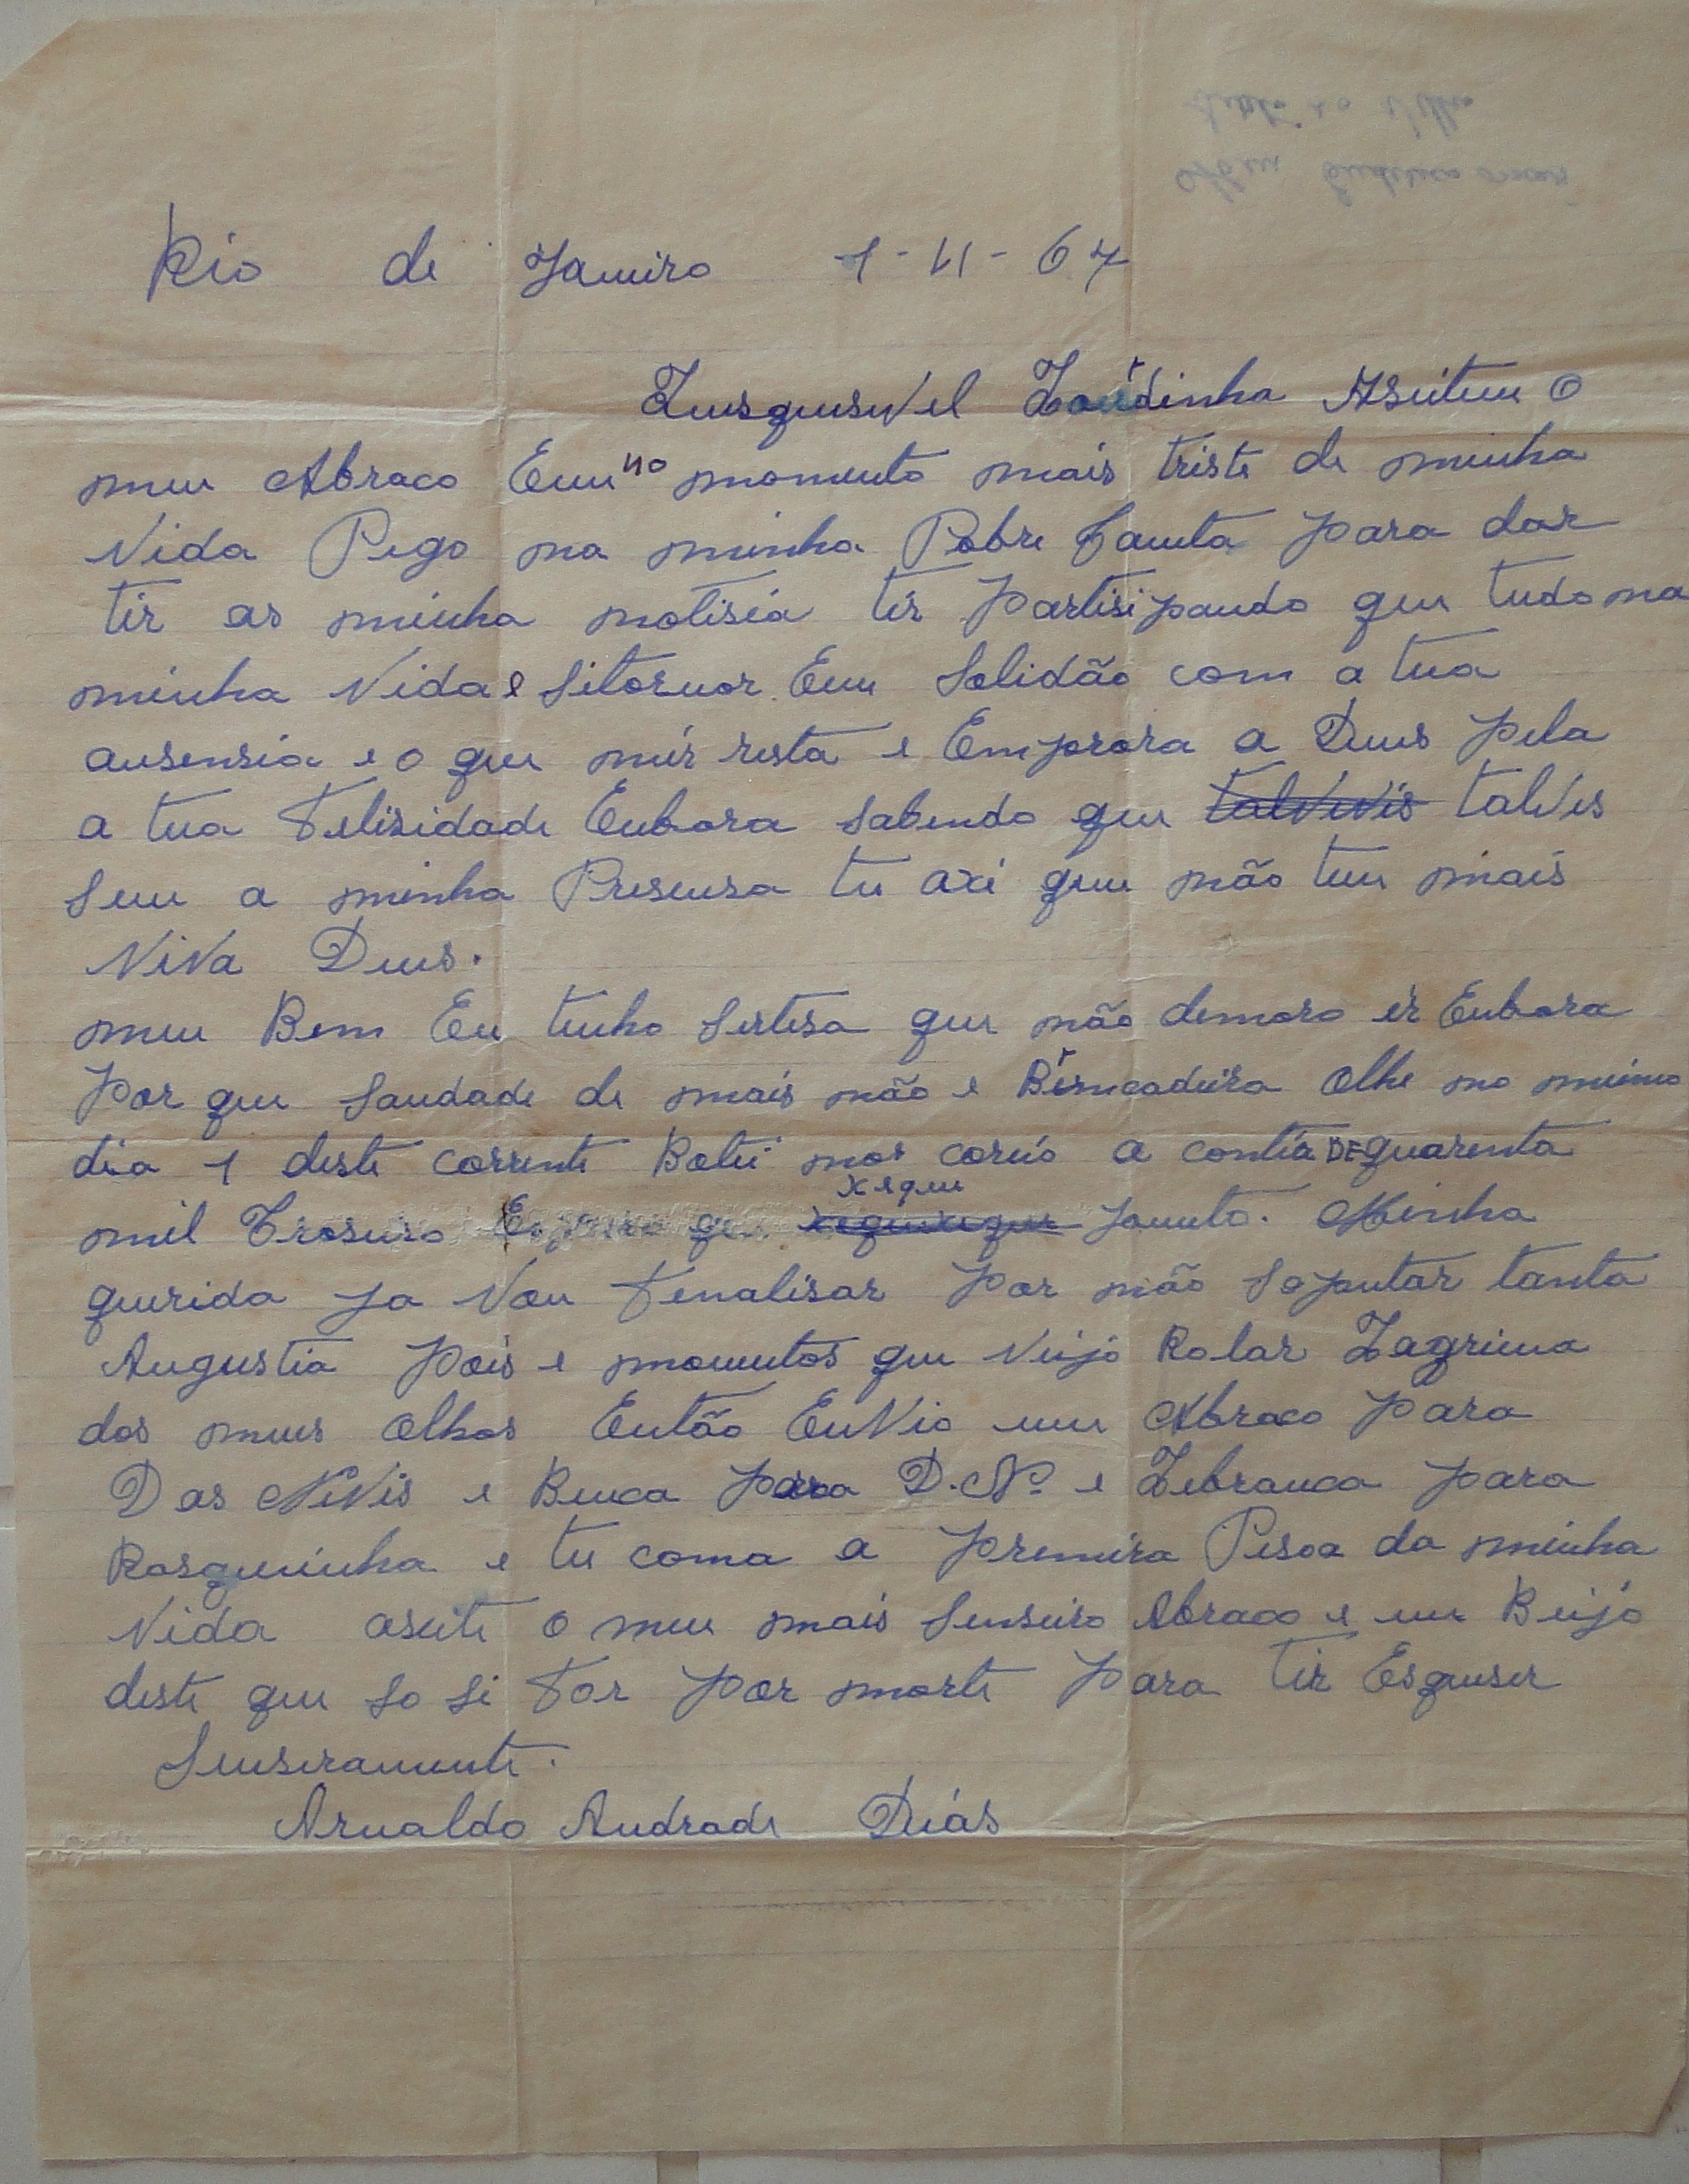 Rio de Janeiro 1-11-67
Enesquesivel Lourdinha Aseiteu O
meu Abraco Eeu no momento mais triste de minha
Vida Pego na minha Pobre Caneta para dar
tir as minha notisia tir Partisipando que tudo na
minha Vida e Sitornor Em Solidão com a tua
ausensia e o que mir resta e Emprora a Deus Pela
a tua Felisidade Enbora Sabendo que talVeVis talVes
Sem a minha Presensa tu axi que não tem mais
ViVa Deus.
meu Bem Eu tenho Sertesa que não demoro ir Enbora
Por que Saudade de mais não e Brincadeira Olhe no mesmo
dia 1 deste corrente Botei nos coreio a contia DE quarenta
mil Croseiro Espero que xeque Janeto. Minha
querida ja Vou Fenalisar Por não Soportar tanta
Angustia Pois e momentos que Veijo Rolar Lagrima
dos meus Olhos Então EnVio um Abraco Para
Das NeVis e Benca Para D. Nº e Lebranca Para
Rosqueinha e tu coma a Premeira Pesoa da minha
Vida aseite o meu mais Senseiro Abraco e um Beijo
deste que So Si For Por morte Para Tir Esqueser
Senseramente.
Arnaldo Andrade Diás